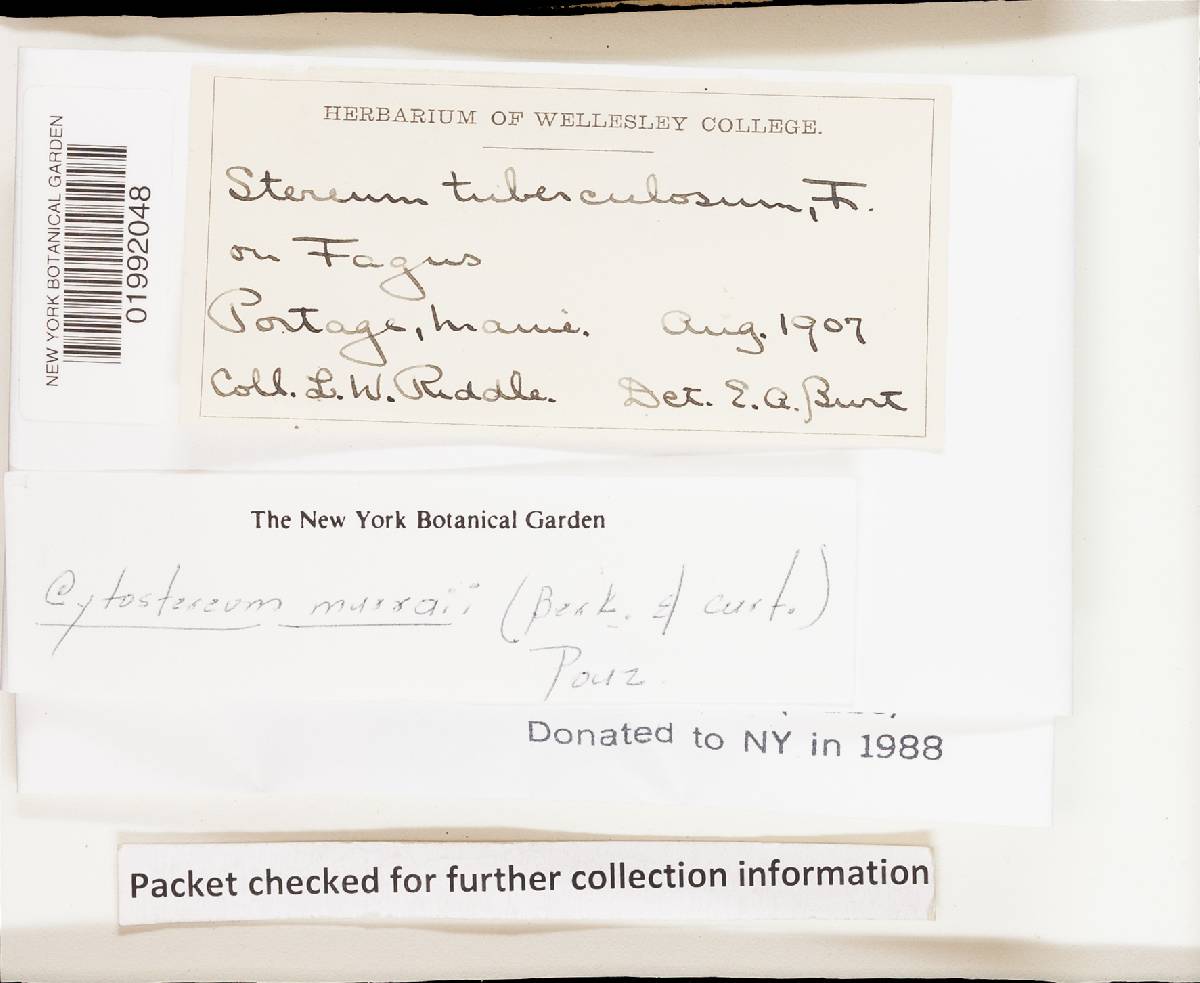 NEW YORK BOTANICAL GARDEN
01992048
HERBARIUM OF WELLESLEY COLLEGE.
Stereum tuberculosum, Fr.
on Fagus
Portage, Maine. Aug. 1907
Coll. L. W. Riddle. Det. E. A. Burt
The New York Botanical Garden
Cytostereum murraii (Berk. & Curt.)
Pouz.
Donated to NY in 1988
Packet checked for further collection information